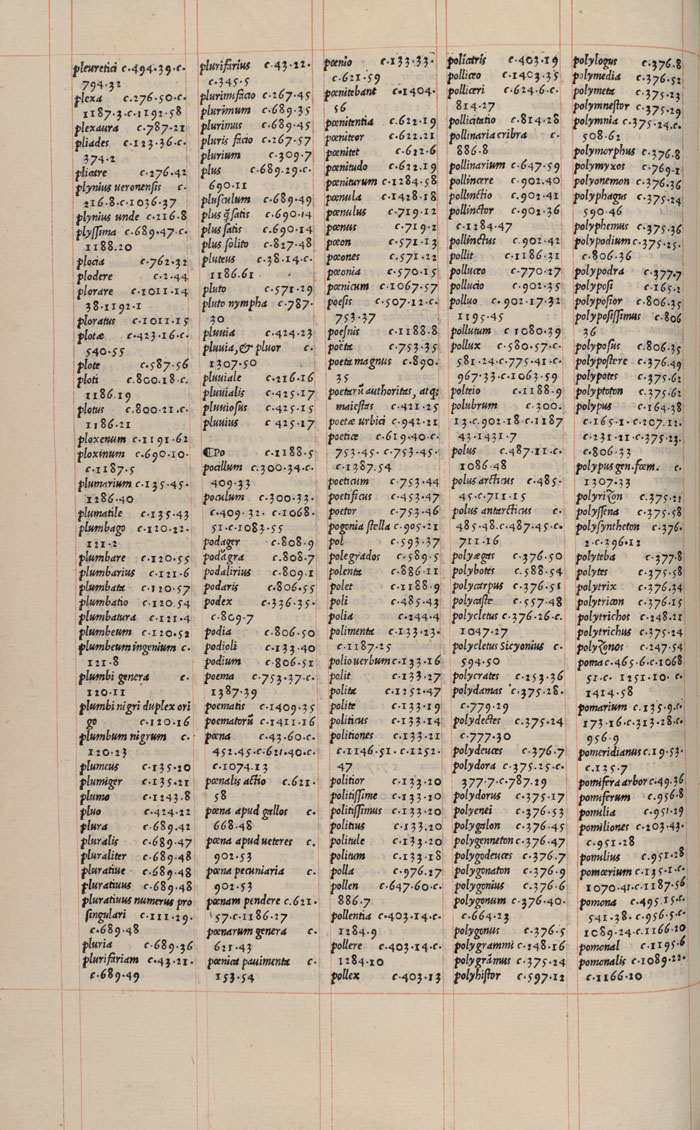 pleuretici c.494.39.c.
794.32
plexa c.276.50.c.
1187.3.c.1192.58
plexaura c.787.21
pliades c.123.36.c.
374.2
pliatre c.276.42
plynius ueronensis c.
216.8.c.1036.37
plynius unde c.216.8
plyssima c.689.47.c.
1188.20
plocia c.762.32
plodere c.2.44
plorare c.1011.14
38.1192.1
ploratus c.1011.15
plotæ c.423.16.c.
540.55
plote c.587.56
ploti c.800.18.c.
1186.19
plotus c.800.21.c.
1186.21
ploxenum c.1191.62
ploxinum c.690.10.
c.1187.5
plumarium c.135.45.
1286.40
plumatile c.135.43
plumbago c.120.22.
121.2
plumbare c.120.55
plumbarius c.121.6
plumbata c.120.57
plumbatio c.120.54
plumbatura c.121.4
plumbeum c.120.52
plumbeum ingenium c.
121.8
plumbi genera c.
120.11
plumbi nigri duplex ori
go c.120.16
plumbum nigrum c.
120.23
plumeus c.135.20
plumiger c.135.21
plumo c.1243.8
pluo c.424.22
plura c.689.42
pluralis c.689.47
pluraliter c.689.48
pluratiue c.689.48
pluratiuus c.689.48
pluratiuus numerus pro
singulari c.111.29.
c.689.48
pluria c.689.36
plurifariam c.43.21.
c.689.49
plurifarius c.43.22.
c.345.5
plurimifacio c.267.45
plurimum c.689.35
plurimus c.689.45
pluris facio c.267.57
plurium c.309.7
plus c.689.29.c.
690.11
plusculum c.689.49
plus q̃ satis c.690.14
plus satis c.690.14
plus solito c.827.48
pluteus c.38.14.c.
1186.61
pluto c.571.29
pluto nympha c.787.
30
pluuia c.424.23
pluuia, & pluor c.
1307.50
pluuiale c.216.16
pluuialis c.425.17
pluuiosus c.425.15
pluuius c 425.17
¶Po c.1188.5
pocillum c.300.34.c.
409.33
poculum c.300.33.
c.409.32. c.1068.
51.c.1083.55
podager c.808.9
podagra c.808.7
podalirius c.809.1
podaris c.806.55
podex c.336.35.
c.809.7
podia c.806.50
podioli c.133.40
podium c.806.51
poema c.753.37.c.
1387.39
poematis c.1409.35
poematorũ c.1411.16
pœna c.43.60.c.
452.45.c.621.40.c.
c.1074.13
pœnalis actio c.621.
58
pœna apud gallos c.
668.48
pœna apud ueteres c.
902.53
pœna pecuniaria c.
902.53
pœnam pendere c.621.
57.c.1186.27
pœnarum genera c.
621.43
pœnica pauimenta c.
153.54
pœnio c.133.33.
c.621.59
pœnitebant c.1404.
56
pœnitentia c.622.19
pœniteor c.622.21
pœnitet c.622.6
pœnitudo c.622.19
pœniturum c.1284.58
pœnula c.1428.18
pœnulus c.719.12
pœnus c.719.2
pœon c.571.13
pœones c.571.22
pœonia c.570.15
pœnicum c.1067.57
poesis c.507.12.c.
753.37
poesnis c.1188.8
poëta c.753.35
poeta magnus c.890.
35
poetarũ authoritas, atq;
maiestas c.421.25
poetæ urbici c.942.21
poeticæ c.619.40.c.
753.45. c.753.45.
c.1387.54
poeticum c.753.44
poetificus c.453.47
poetor c.753.46
pogonia stella c.905.21
pol c.593.37
polegrados c.589.5
polenta c.886.11
polet c.1188.9
poli c.485.43
polia c.244.4
polimenta c.133.23.
c.1187.25
polio uerbum c.133.16
polit c.133.27
polita c.1252.47
polite c.133.19
politicus c.133.14
politiones c.133.21
c.1146.51.c.1252.
47
politior c.133.20
politissime c.133.20
politissimus c.133.20
politius c.133.20
politule c.133.20
politum c.133.18
polla c.976.27
pollen c.647.60.c.
886.7
pollentia c.403.14.c.
1284.9
pollere c.403.14.c.
1284.10
pollex c.403.13
poliatris c.403.19
polliceo c.1403.35
polliceri c.624.6.c.
814.27
pollicitatio c.814.28
pollinaria cribra c.
886.8
pollinarium c.647.59
pollincere c.902.40
pollinctio c.902.41
pollinctor c.902.36
c.1284.47
pollinctus c.902.42
pollit c.1186.31
polluceo c.770.27
pollucio c.902.35
polluo c.902.17.32
1195.45
pollutum c 1080.39
pollux c.580.57.c.
581.24.c.775.41.c.
967.33.c.1063.59
polteio c.1188.9
polubrum c.300.
13.c.902.18.c.1187
43.1431.7
polus c.487.11.c.
1086.48
polus arcticus c.485.
45.c.711.15
polus antarcticus c.
485.48.c.487.45.c.
711.16
polyægas c.376.50
polybotes c.588.54
polycarpus c.376.51
polycaste c.557.48
polycletus c.376.26.c.
1047.27
polycletus Sicyonius c.
594.50
polycrates c.253.36
polydamas c.375.28.
c.779.29
polydectes c.375.24
c.777.30
polydeuces c.376.7
polydora c.375.25.c.
377.7.c.787.29
polydorus c.375.17
polyenei c.376.53
polygalon c.376.45
polygenneton c.376.47
polygodeuces c.376.7
polygonaton c.376.9
polygonius c.376.6
polygonum c.376.40.
c.664.23
polygonus c.376.5
polygrammi c.248.16
polygrãmus c.375.24
polyhistor c.597.12
polylogus c.376.8
polymedia c.376.52
polymeta c.375.23
polymnestor c.375.29
polymnia c.375.24.c.
508.62
polymorphus c.376.8
polymyxos c.769.1
polyonemon c.376.36
polyphagus c.375.24
590.46
polyphemus c.375.36
polypodium c.375.25.
c.806.36
polypodra c.377.7
polyposi c.165.2
polyposior c.806.35
polyposissimus c.806
36
polyposus c.806.35
polypostere c.376.49
polypotes c.375.62
polyptoton c.375.62
polypus c.164.38
c.165.1.c.207.12.
c.231.21.c.375.23.
c.806.33
polypus gen.fœm. c.
1307.33
polyrizon c.375.21
polyssena c.375.58
polysyntheton c.376.
2.c.296.12
polyteba c.377.8
polytes c.375.58
polytrix c.376.34
polytricon c.376.15
polytrichos c.248.21
polytrichus c.375.24
polyzonos c.247.54
poma c.465.6.c.1068
51.c. 1251.10. c.
1414.58
pomarium c.135.9.c.
173.16.c.313.28.c.
956.9
pomeridianus c.19.53.
c.135.7
pomifera arbor c.49.36
pomiferum c.956.8
pomilia c.951.29
pomiliones c.203.43.
c.951.28
pomilius c.951.28
pomœrium c.135.1.c.
1070.41.c.1187.56
pomona c.495.15.c.
541.38. c.956.5.c.
1089.24.c.1166.20
pomonal c.1195.6
pomonalis c.1089.22.
c.1166.20